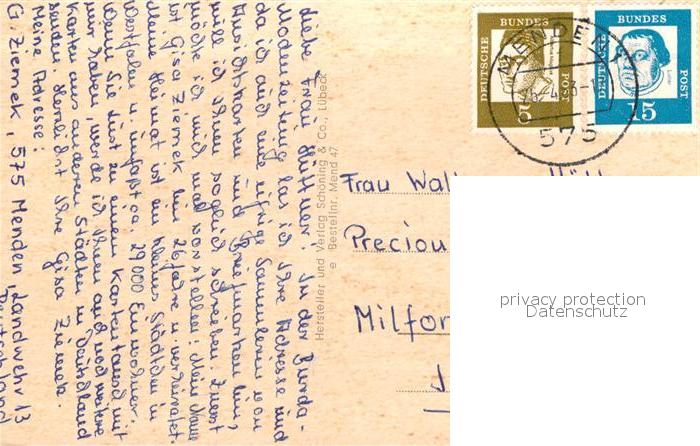 Liebe Frau Hüttner! In der Burda-
Modenzeitung las ich Ihre Adresse und
da ich auch eine eifrige Sammlerin von
Ansichtskarten und Briefmarken bin,
will ich Ihnen sogleich schreiben. Zuerst
möchte ich mich mal vorstellen: Mein Name
ist Gisa Ziemek bin 26 Jahre u. verheiratet.
Meine Heimat ist ein kleines Städtchen in
Westfalen u. umfaßt ca. 29000 Einwohner.
Wenn Sie Lust zu einem Kartentausch mit
mir haben, werde ich Ihnen auch noch weitere
Karten aus anderen Städten in Deutschland
senden. Herzlichst Ihre Gisa Ziemek.
Meine Adresse:
G. Ziemek, 575 Menden, Landwehr 13
Deutschland
Hersteller und Verlag Schöning & Co., Lübeck
Bestellnr. Mend 47
DEUTSCHE BUNDES POST
5
DEUTSCHE BUNDES POST
15
575
Frau
Preciou
Milfor
privacy protection
Datenschutz